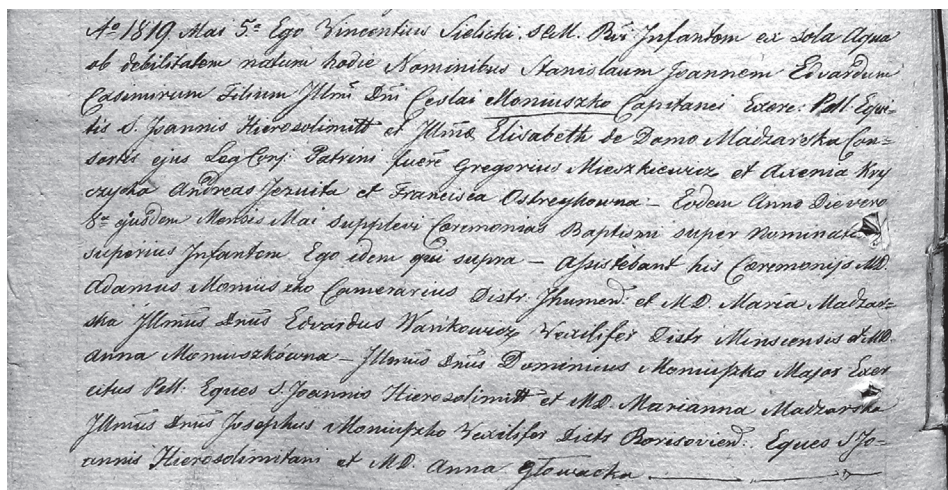 Aº 1819 Mai 5ª Ego Vincentius Sielicki. S.R.M. Bvi Infantem ex sola Aqua
ob debilitatem natum hodie Nominibus Stanislaum Joannem Edvardum
Casimirum Filium Illmi Dni Ceslai Moniuszko Capitanei Exerc: Poll. Equi=
tis S. Joannis Hierosolimitt et Illmæ Elisabeth de Domo Madzarska Con=
sortis ejus Leg Conj. Patrini fuere Gregorius Mieszkiewicz et Axenia Kry
czycha Andreas Jezuita et Francisca Ostreykowna – Eodem Anno Die vero
8ª ejusdem Mensis Mai supplevi Cæremonias Baptismi super nominato
superius Infantem Ego idem qui supra – Assistebant his Cæremonijs MD.
Adamus Moniuszko Camerarius Distr: Jhumen: et M.D. Maria Madzar=
ska Illmus Dnus Edvardus Wańkowicz Vexilifer Distr Minscensis et MD.
Anna Moniuszkowna – Illmus Dnus Dominicus Moniuszko Major Exer
citus Poll: Eques S. Joannis Hierosolimitt et MD. Marianna Madzarska
Illmus Dnus Josephus Moniuszko Vexilifer Distr Borisovien: Eques S Jo=
annis Hierosolimitani et M.D. Anna Głowacka